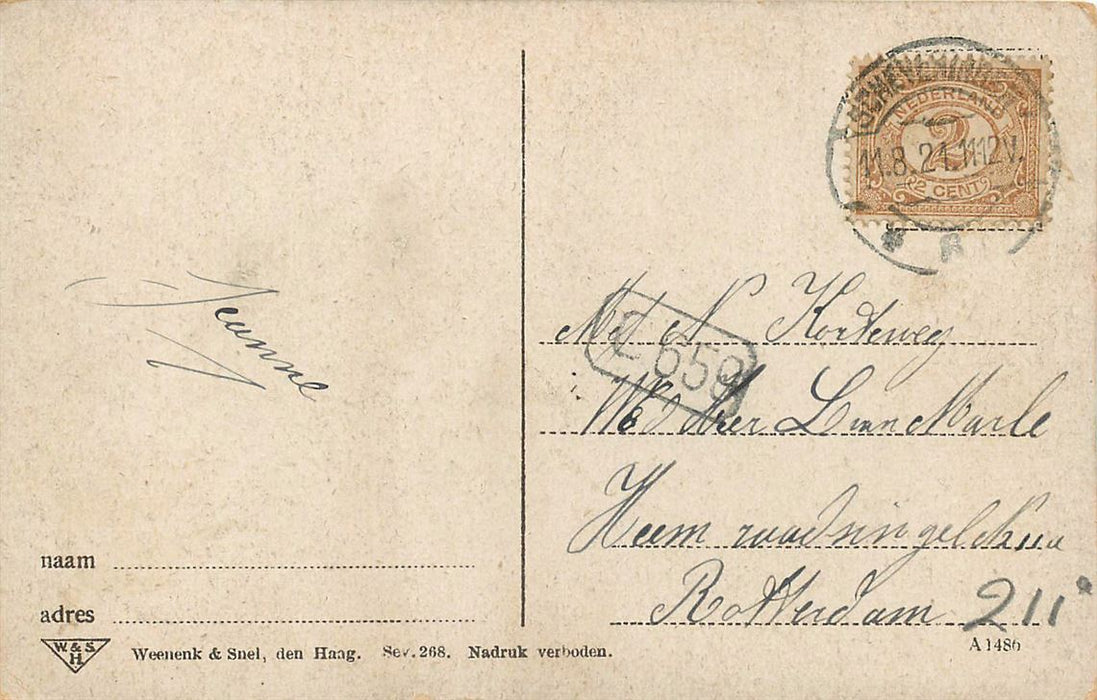 SCHEVENINGEN
NEDERLAND
2
11.8.21.11-12V.
2 CENT
Jeunne
Mej N Korteweg
E 659
Heer L van Marle
Heemraadsingel
Rotterdam 211
naam
adres
W.&S.
H.
Weenenk & Snel, den Haag. Sev. 268. Nadruk verboden.
A 1486